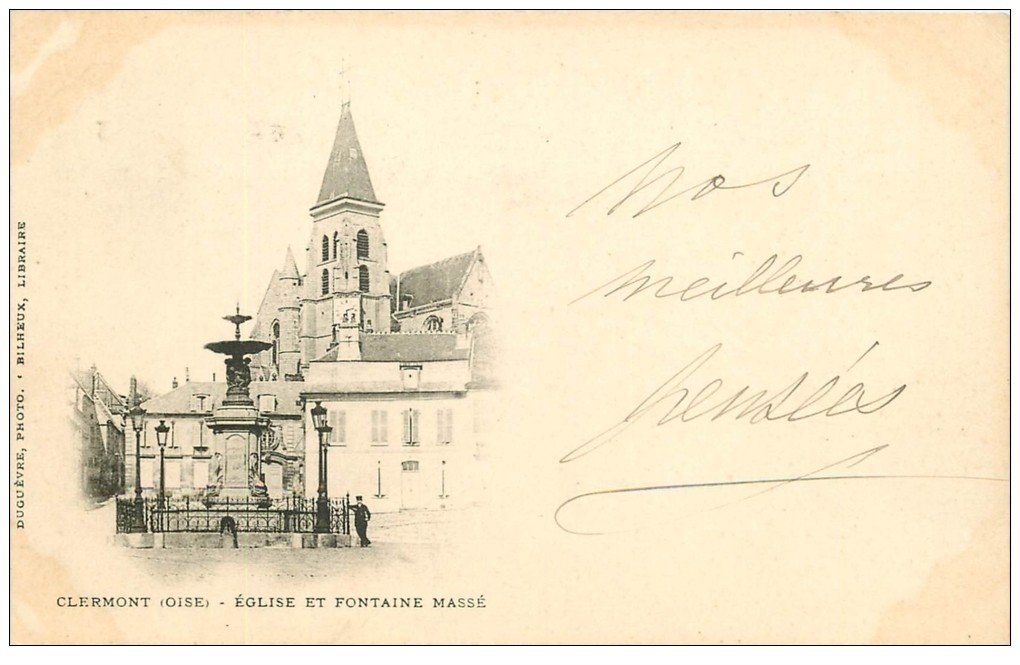 DUGUÈVRE, PHOTO. • BILHEUX, LIBRAIRE
CLERMONT (OISE) - ÉGLISE ET FONTAINE MASSÉ
Nos
meilleures
pensées